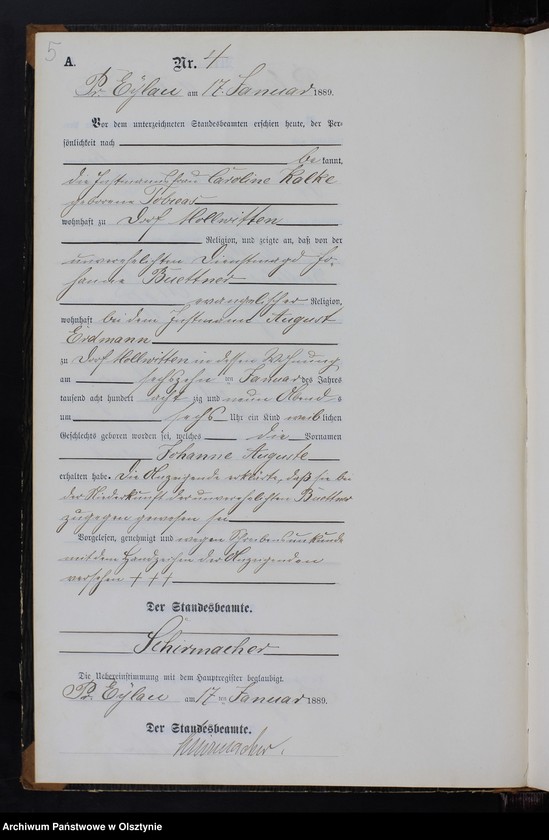 5
A.
Nr. 4
Pr. Eylau am 17. Januar 1889.
Vor dem unterzeichneten Standesbeamten erschien heute, der Per-
sönlichkeit nach
be kannt,
die Instmannsfrau Caroline Kalke
geborene Tobieas
wohnhaft zu Dorf Mollwitten
Religion, und zeigte an, daß von der
unverehelichten Dienstmagd Jo-
hanne Buettner
evangelischer Religion,
wohnhaft bei dem Instmann August
Erdmann
zu Dorf Mollwitten in dessen Wohnung
am sechszehn ten Januar des Jahres
tausend acht hundert acht zig und neun Abends
um sechs Uhr ein Kind weib lichen
Geschlechts geboren worden sei, welches die Vornamen
Johanne Auguste
erhalten habe. Die Anzeigende erklärte, daß sie bei
der Niederkunft der unverehelichten Buettner
zugegen gewesen sei
Vorgelesen, genehmigt und wegen Schreibensunkunde
mit dem Handzeichen der Anzeigenden
versehen + + +
Der Standesbeamte.
Schirmacher
Die Uebereinstimmung mit dem Hauptregister beglaubigt.
Pr. Eylau am 17 ten Januar 1889.
Der Standesbeamte.
Schirmacher.
Archiwum Państwowe w Olsztynie